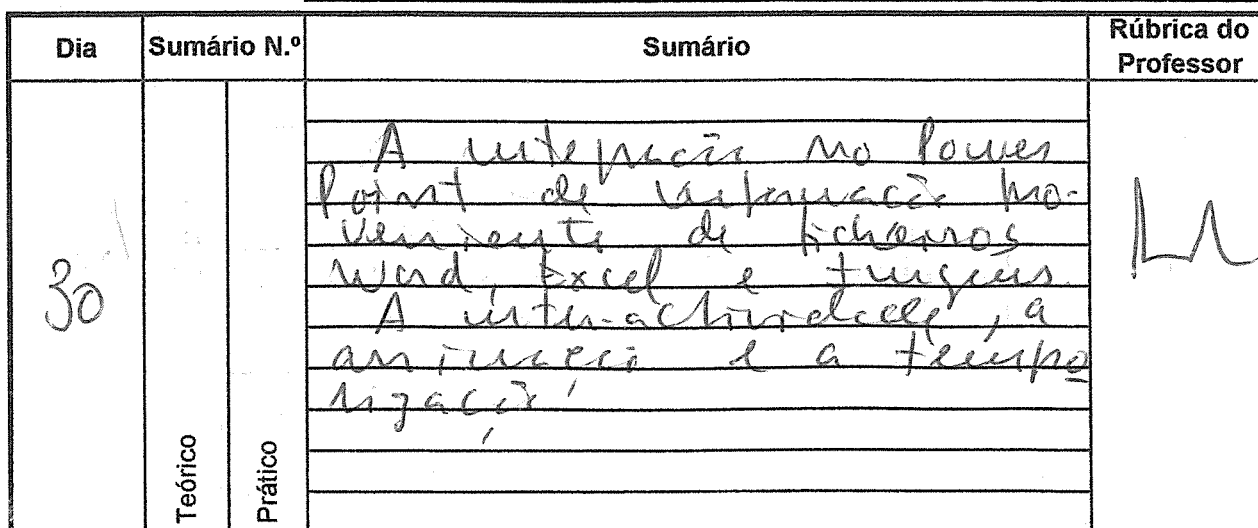 Dia Sumário N.º Sumário Rúbrica do Professor
30
A integração no Power
Point de informação pro-
veniente de ficheiros
Word, Excel e Imagens.
A inter-actividade, a
animação e a tempo
rização
Teórico
Prático